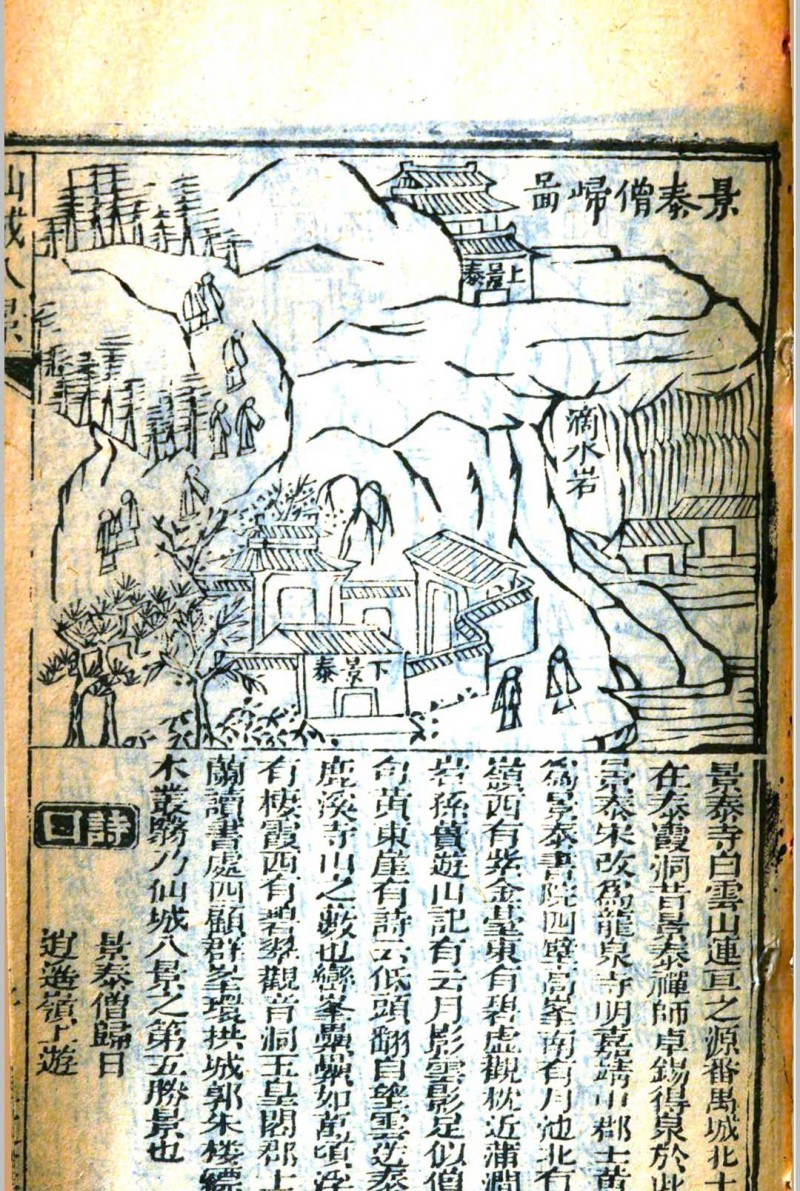 景泰僧歸啚
上景泰
滴水岩
下景泰
仙城八景
景泰寺白雲山連亘之源番禺城北十
在泰霞洞昔景泰禪師卓錫得泉於此
景泰宋改爲龍泉寺明嘉靖中郡士黃
爲景泰書院四壁高峯南有月池北有
嶺西有紫金臺東有碧虛觀枕近蒲澗
岩孫蕡遊山記有云月影雲影足似伯
句黃東崖有詩云低頭翻自望雲泰
鹿溪寺山之數也巒峯顯顯如萬頃浮
有棲霞西有碧翠觀音洞玉皇閣郡上
蘭讀書處四顧群峯環拱城郭朱樓縹
木叢勝乃仙城八景之第五勝景也
詩曰
景泰僧歸日
逍遙嶺上遊